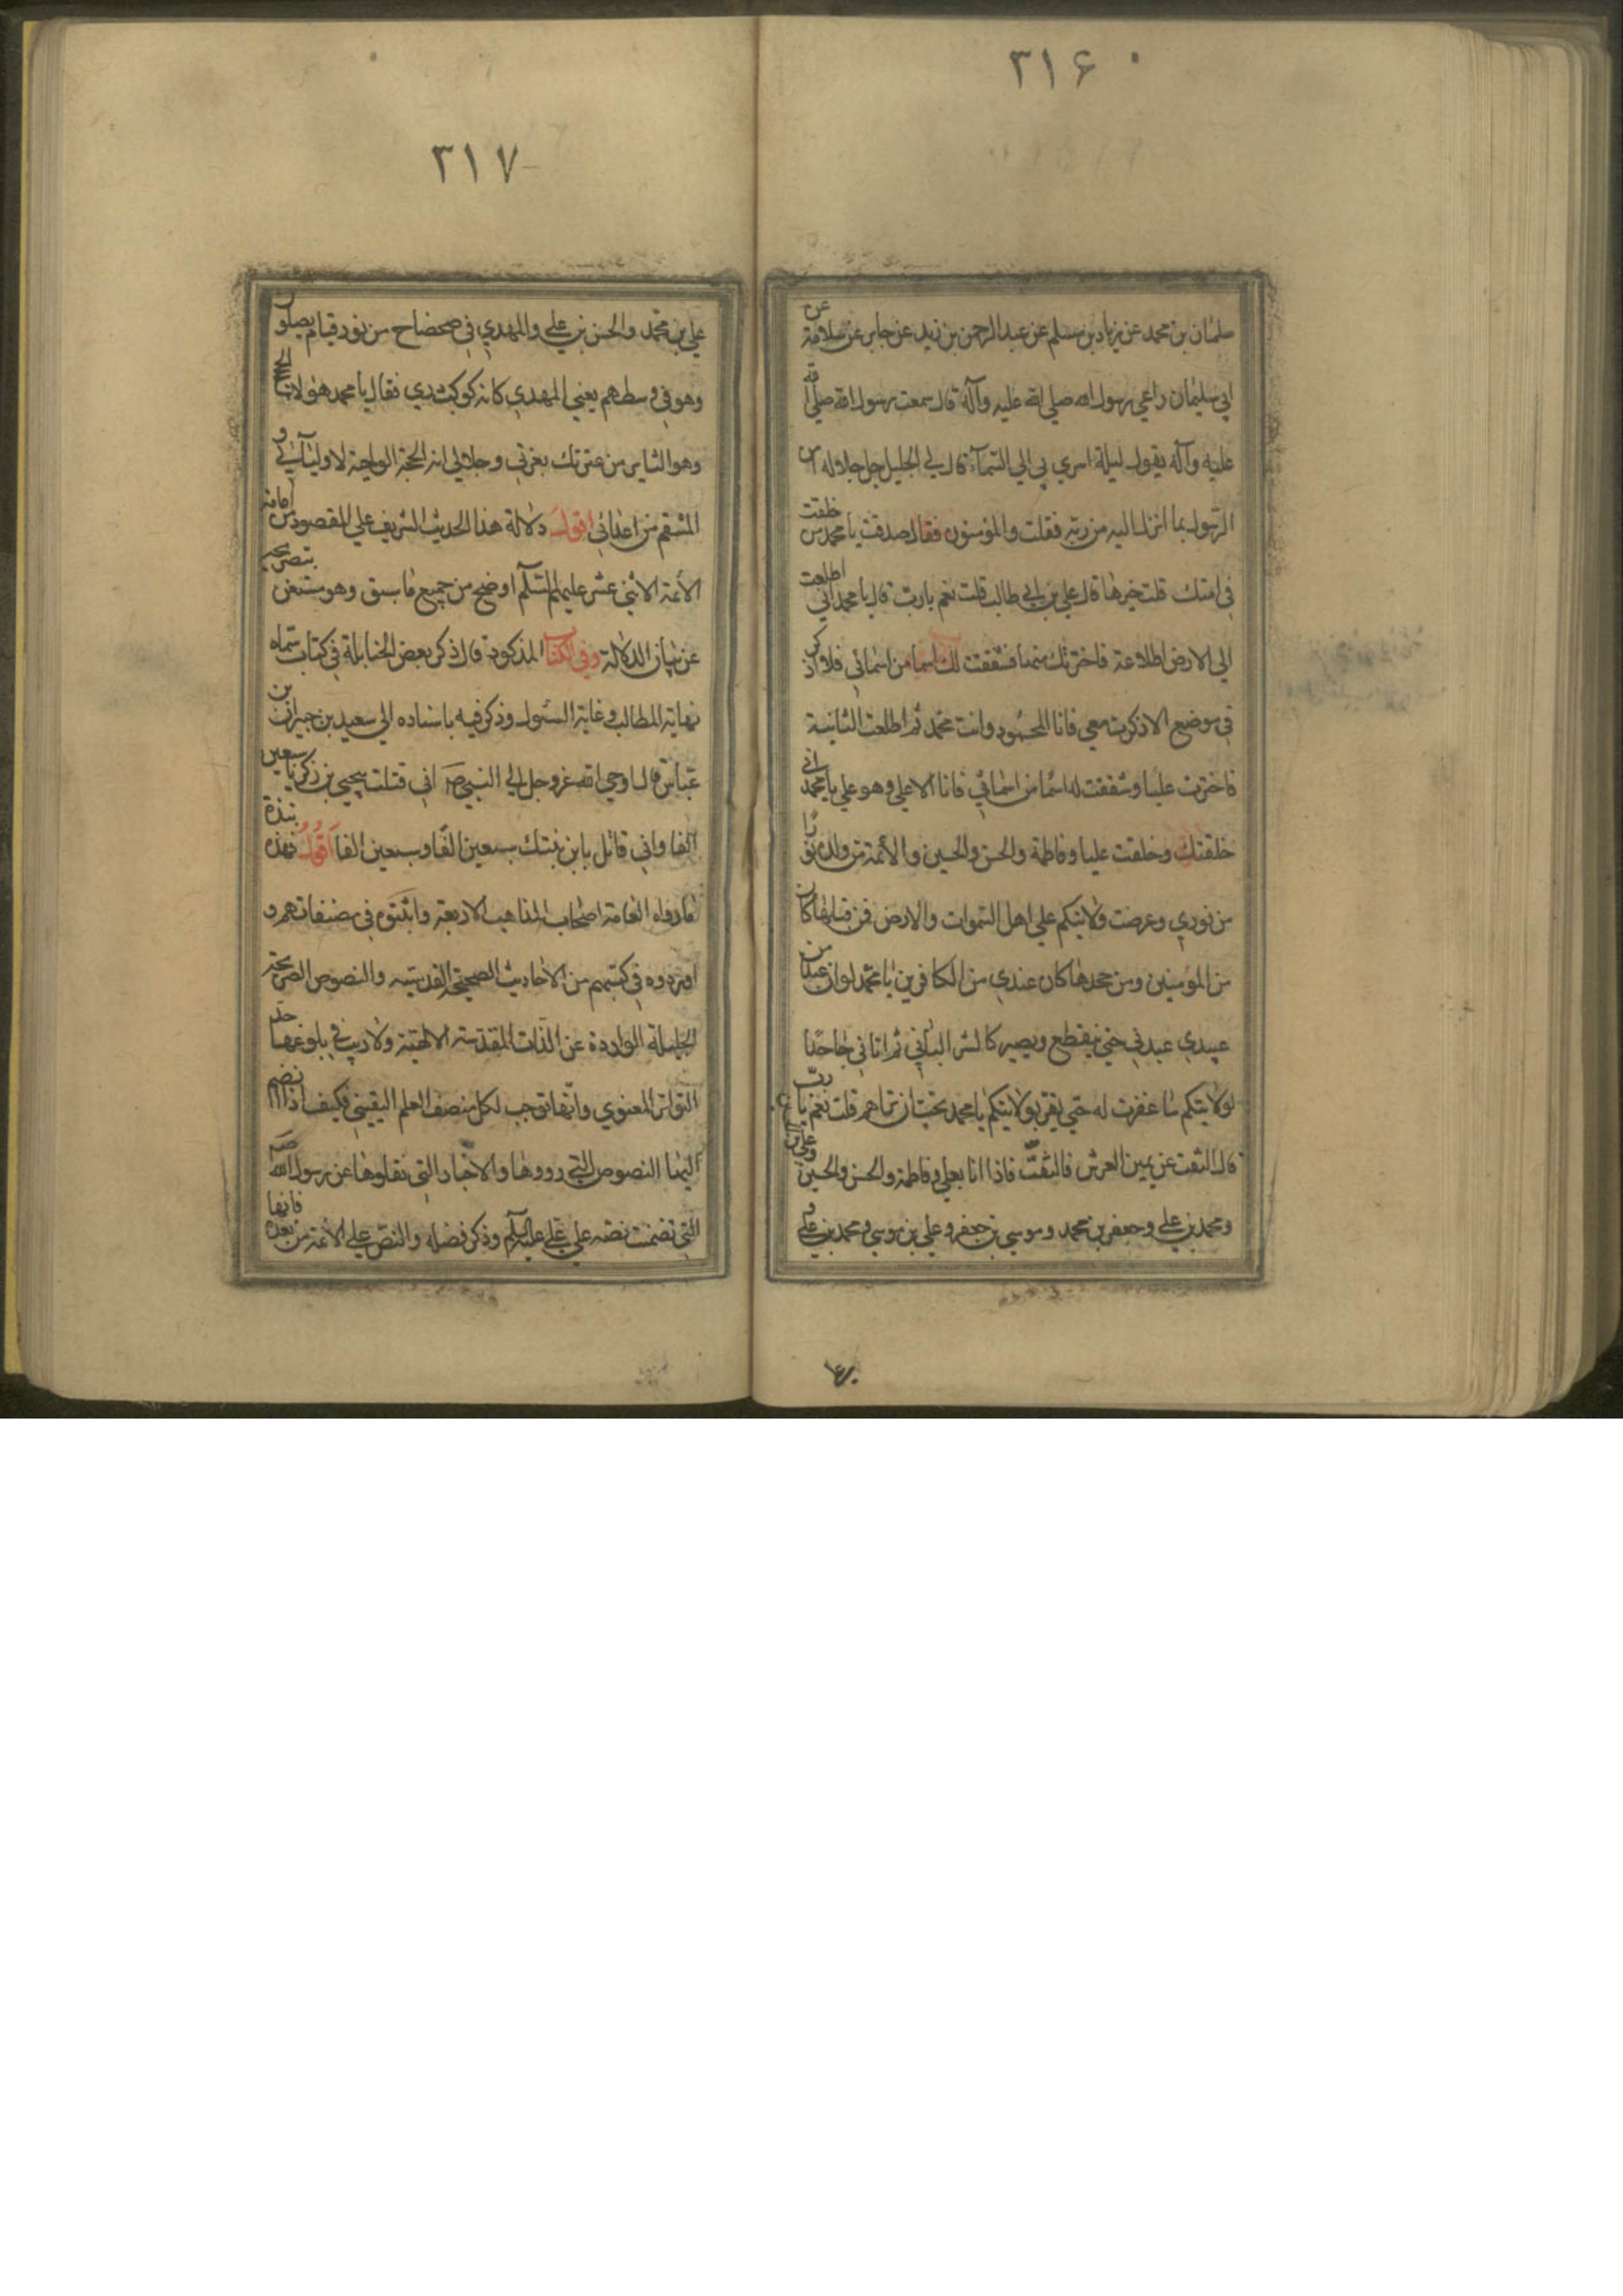 ۳۱۶
سلمان بن محمد عن زياد بن مسلم عن عبد الرحمن بن زيد عن جابر عن سلامة عن
ابي سليمان راعي رسول الله صلي الله عليه وآله قال سمعت رسول الله صلي الله
عليه وآله يقول ليلة اسري بي الي السمآء قال لي الجليل جل جلاله امن
الرسول بما انزل اليه من ربه فقلت والمؤمنون فقال صدقت يا محمد من خلقت
في امتك قلت خيرها قال علي بن ابي طالب قلت نعم يا رب قال يا محمد اني اطلعت
الي الارض اطلاعة فاخترتك منها فشققت لك اسما من اسمائي فلا اذكر
في موضع الا ذكرت معي فانا المحمود وانت محمد ثم اطلعت الثانية
فاخترت عليا وشققت له اسما من اسمائي فانا الاعلي وهو علي يا محمد اني
خلقتك وخلقت عليا وفاطمة والحسن والحسين والأئمة من ولده نورًا
من نوري وعرضت ولايتكم علي اهل السموات والارض فمن قبلها كان
من المؤمنين ومن جحدها كان عندي من الكافرين يا محمد لو ان عبدًا من
عبيدي عبدني حتي ينقطع ويصير كالشن البالي ثم اتاني جاحدًا
لولايتكم ما غفرت له حتي يقر بولايتكم يا محمد تحب ان تراهم قلت نعم يا ربّ
قال التفت عن يمين العرش فالتفتّ فاذا انا بعلي وفاطمة والحسن والحسين وعلي بن الحسين
ومحمد بن علي وجعفر بن محمد وموسي بن جعفر وعلي بن موسي ومحمد بن علي و
۳۱۷
علي بن محمد والحسن بن علي والمهدي في ضحضاح من نور قيام يصلون
وهو في وسطهم يعني المهدي كانه كوكب دري فقال يا محمد هؤلاء الحجج
وهو الثاير من عترتك بعزتي وجلالي انه الحجة الواجبة لاوليآئي و
المنتقم من اعدائي اقول دلالة هذا الحديث الشريف علي المقصود من امامة
الأئمة الاثني عشر عليهم السلم اوضح من جميع ما سبق وهو مستغن بتصريحه
عن بيان الدلالة وفي الكتاب المذكور قال ذكر بعض الحنابلة في كتاب سماه
نهاية المطالب وغاية السئول وذكر فيه باسناده الي سعيد بن جبير ان بن
عباس قال اوحي الله عز وجل الي النبي ص اني قتلت بيحيي بن زكريا سبعين
الفا واني قاتل بابن بنتك سبعين الفًا وسبعين الفا اَقُولُ فهذه نبذة
مما رواه العامة اصحاب المذاهب الاربعة واثبتوه في مصنفاتهم و
اوردوه في كتبهم من الأحاديث الصحيحة القدسيّه والنصوص الصريحة
الجليلة الواردة عن الذات المقدسة الالهيّة ولا ريب في بلوغها حد
التواتر المعنوي وانّها توجب لكل منصف العلم اليقيني فكيف اذا انضم
اليها النصوص التي رووها والاخبار التي نقلوها عن رسول الله ص
التي تضمنت نصه علي علي عليه السلم وذكر فضله والنصّ علي الأئمة من بعده فانها